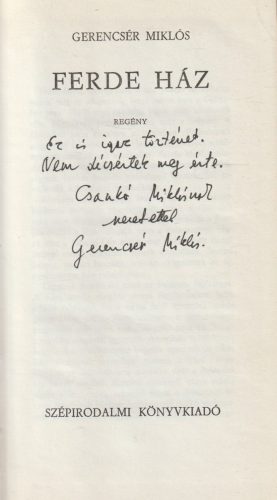 GERENCSÉR MIKLÓS
FERDE HÁZ
REGÉNY
Ez is igaz történet.
Nem dicsértek meg érte.
Csankó Miklósnak
szeretettel
Gerencsér Miklós.
SZÉPIRODALMI KÖNYVKIADÓ